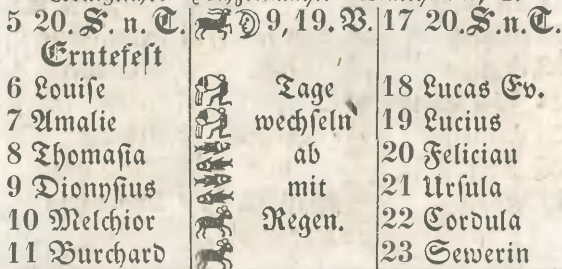 5 20. S. n. T. 9, 19. V. 17 20. S. n. T.
Erntefest
6 Louise Tage 18 Lucas Ev.
7 Amalie wechseln 19 Lucius
8 Thomasia ab 20 Feliciau
9 Dionysius mit 21 Ursula
10 Melchior Regen. 22 Cordula
11 Burchard 23 Sewerin